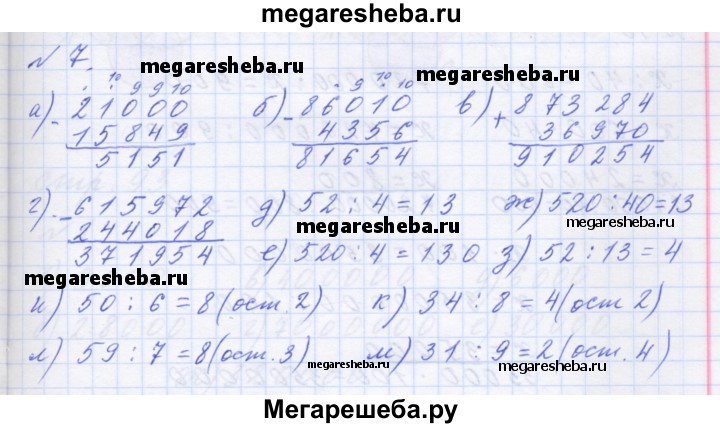 megaresheba.ru
№ 7.
megaresheba.ru
megaresheba.ru
10 9 9 10
9 10 10
а) - 21000
б) - 86010
в) + 873 284
15849
4356
36970
5151
81654
910254
г) - 615972
д) 52 : 4 = 13
ж) 520 : 40 = 13
244018
megaresheba.ru
371954
е) 520 : 4 = 130
з) 52 : 13 = 4
megaresheba.ru
megaresheba.ru
и) 50 : 6 = 8 (ост. 2)
к) 34 : 8 = 4 (ост 2)
л) 59 : 7 = 8 (ост. 3)
м) 31 : 9 = 2 (ост. 4)
megaresheba.ru
megaresheba.ru
Мегарешеба.ру